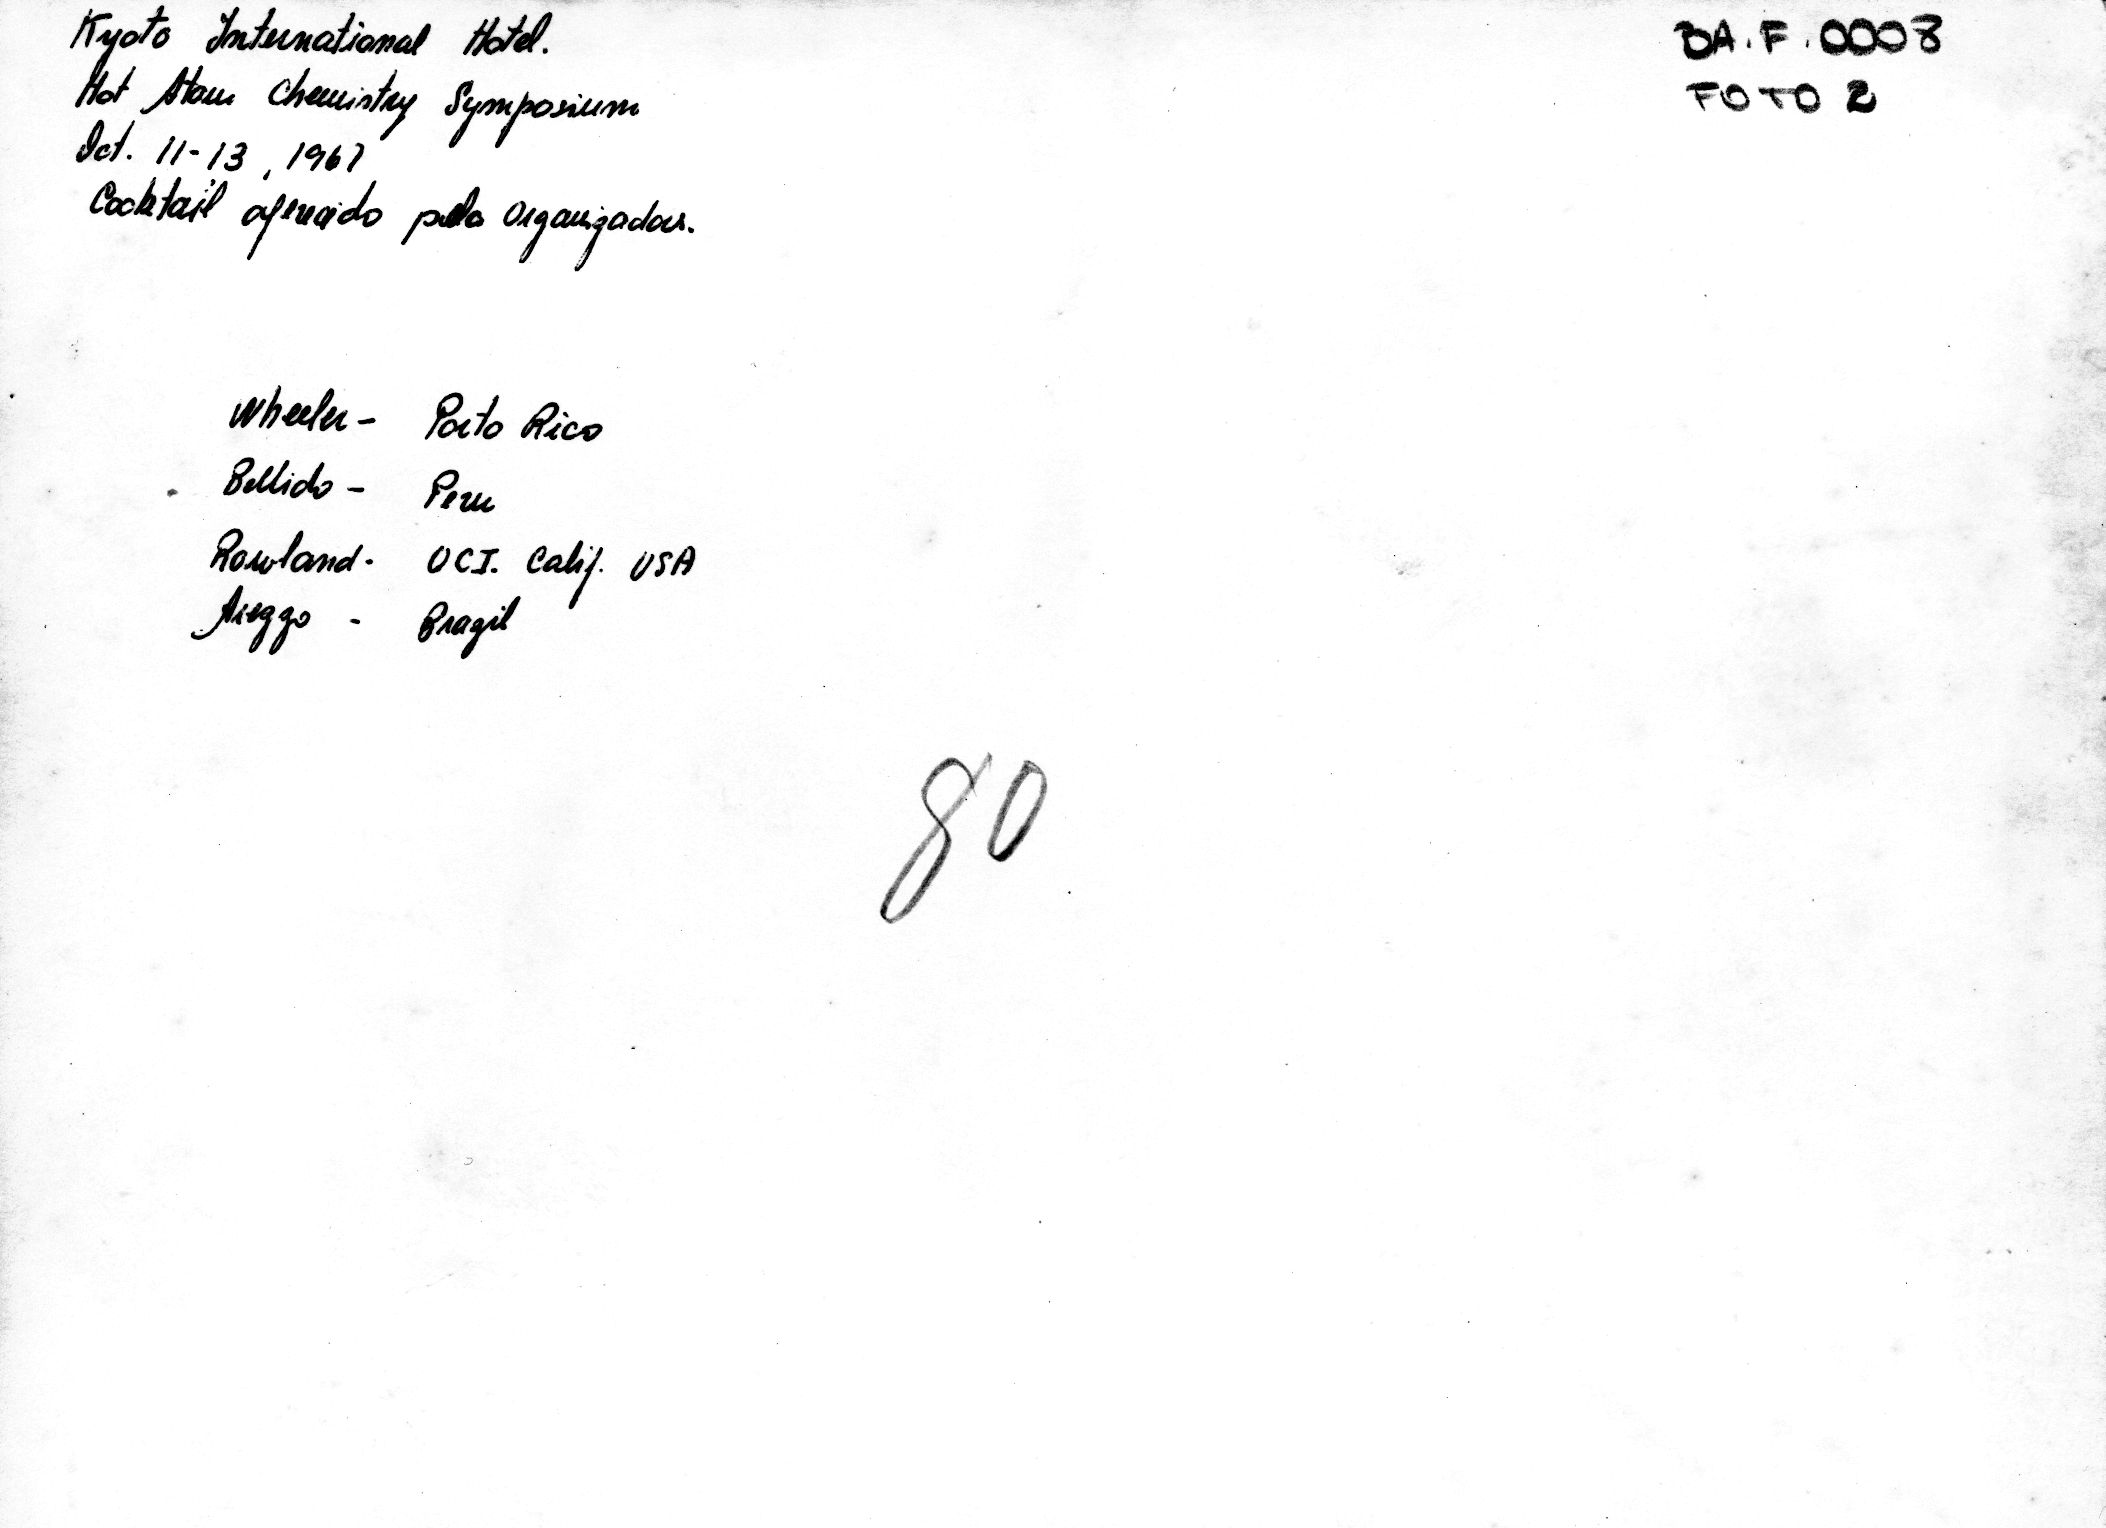 Kyoto International Hotel.
Hot Atom Chemistry Symposium
Oct. 11-13, 1967
Cocktail oferecido pelo Organizador.
BA.F.0008
FOTO 2
Wheeler - Porto Rico
Bellido - Peru
Rowland - UCI. Calif. USA
Arezzo - Brazil
80